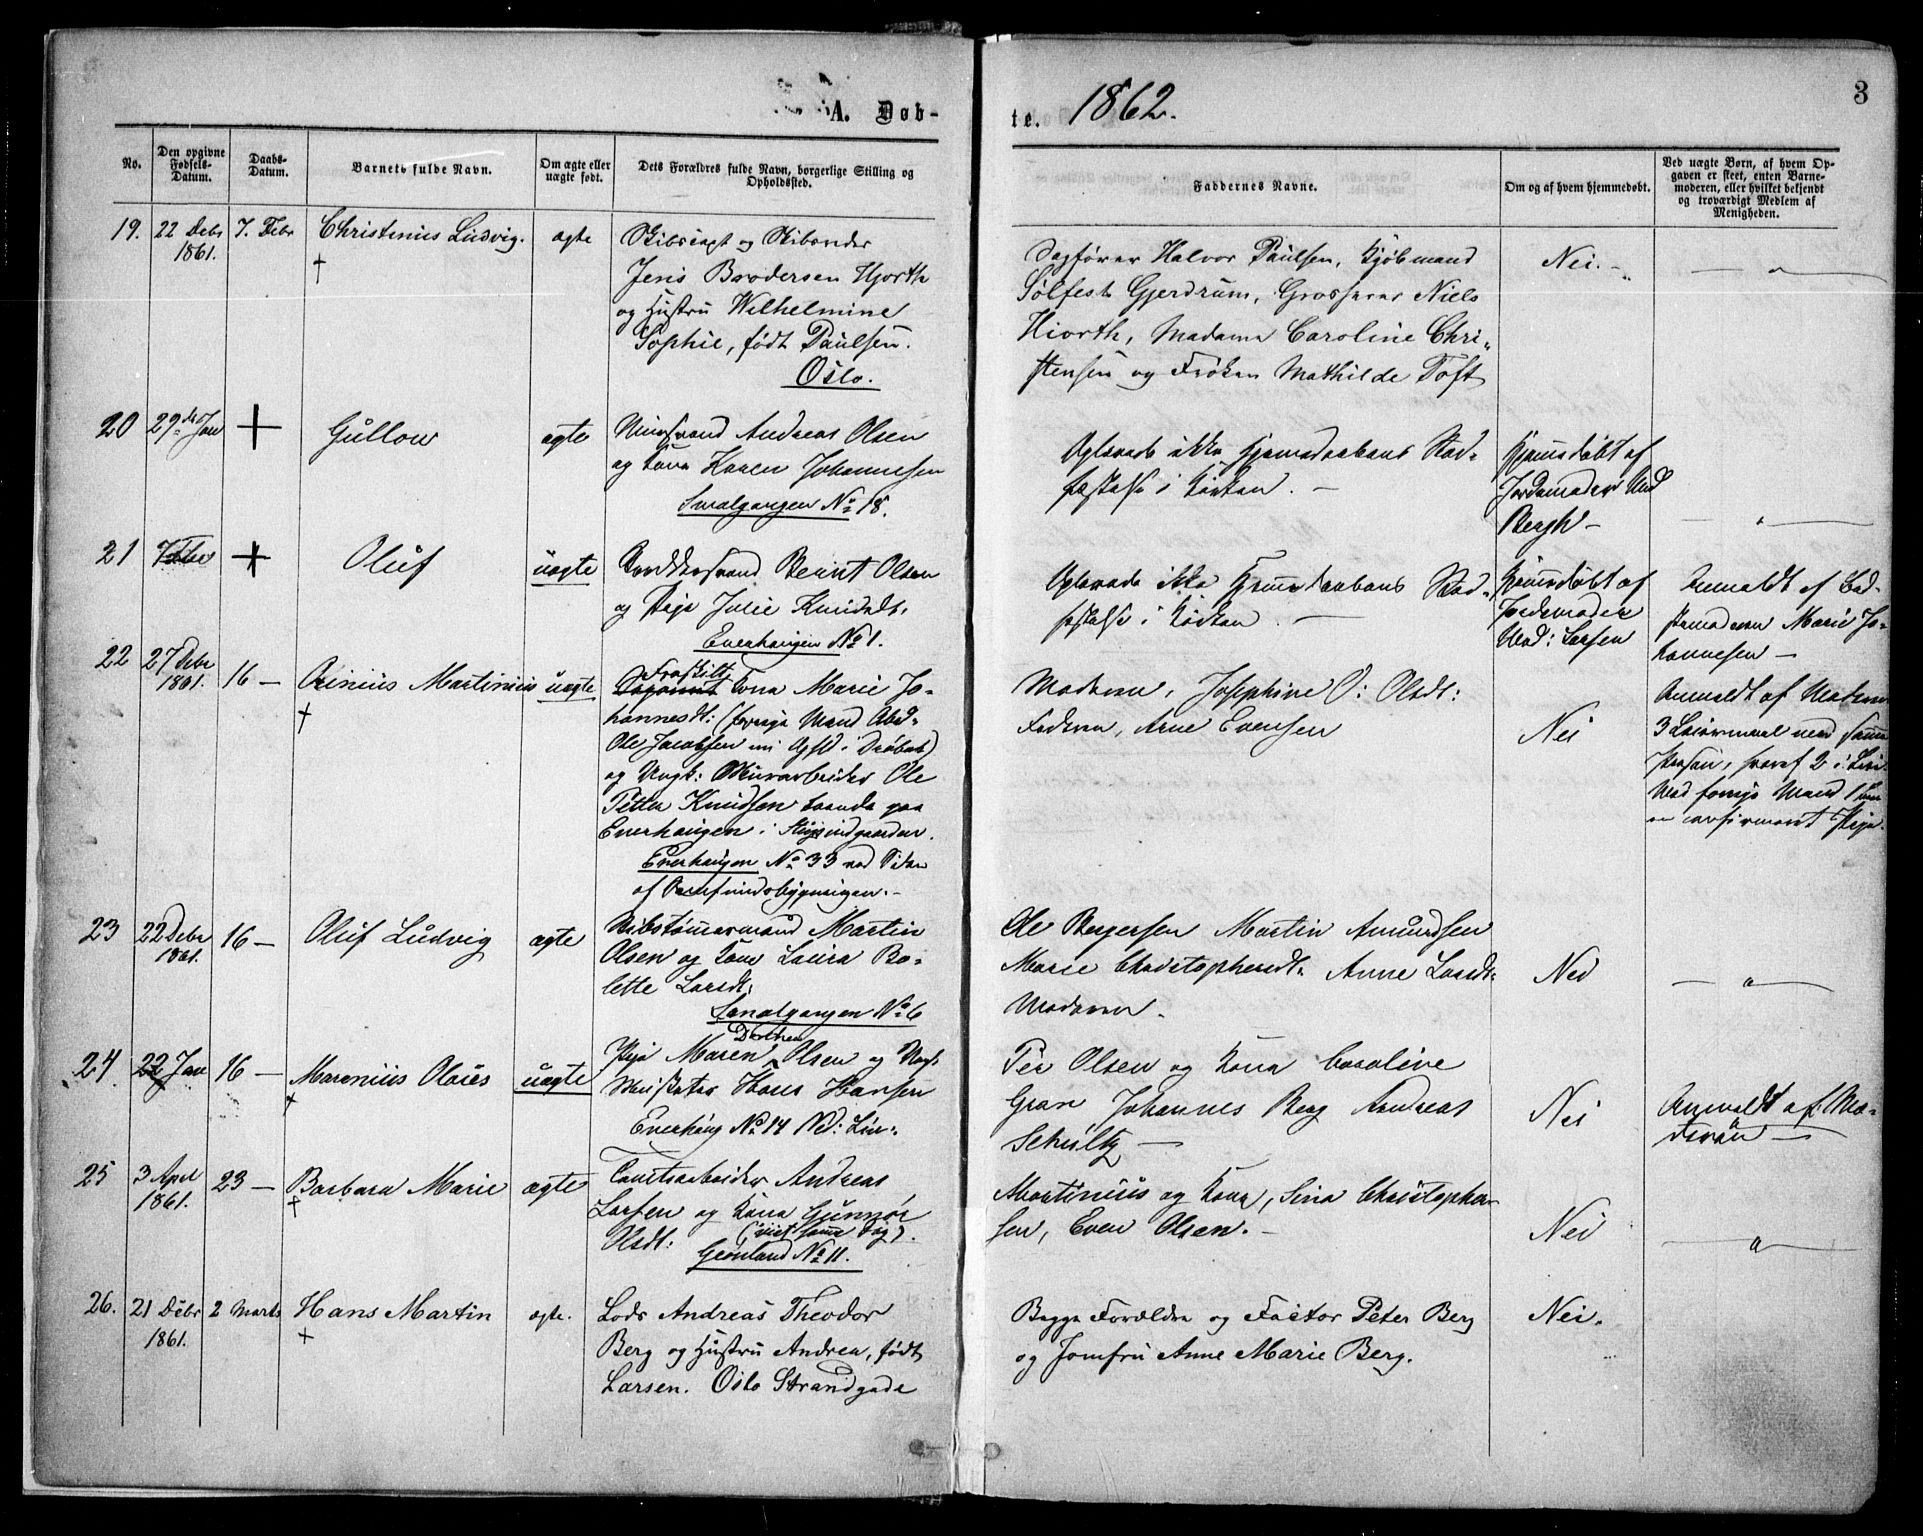 A. Døb-
te. 1862.
3
No.
Den opgivne Fødsels-Datum.
Daabs-Datum.
Barnets fulde Navn.
Om ægte eller uægte født.
Dets Forældres fulde Navn, borgerlige Stilling og Opholdssted.
Faddernes Navne.
Om og af hvem hjemmedøbt.
Ved uægte Børn, af hvem Opgaven er skeet, enten Barnemoderen, eller hvilket bekjendt og troværdigt Medlem af Menigheden.
19. 22 Debr 1861. 7. Febr Christinius Ludvig. ægte
Jens Brodersen Hjorth
og Hustru Wilhelmine
Sophie, født Paulsen.
Oslo.
Sagfører Halvor Paulsen, Kjøbmand
Sølfest Gjerdrum, Grosserer Niels
Hiorth, Madame Caroline Chri-
stensen og Frøken Mathilde Toft
Nei.
20 29de Jan + Gullow ægte
Andreas Olsen
og Kone Karen Johannesen
Smalgangen No 18.
Oplevede ikke Hjemmedaabens Stad-
fæstelse i Kirken. —
Hjemmedøbt af
Jordemoder Mad
Bergh —
21 7 Febr + Oluf uægte
Bernt Olsen
og Pige Julie Knudsdt.
Enerhaugen No 1.
Oplevede ikke Hjemmedaabens Stad-
fæstelse i Kirken. —
Hjemmedøbt af
Jordemoder
Mad: Larsen
Anmeldt af
Marie Jo-
hannesen —
22 27 Debr 1861. 16 — Martinius uægte
Fraskilt
Kone Marie Jo-
hannesdt: (forrige Mand
Ole Jacobsen nu i Drøbak)
og Ungk: Murarbeider Ole
Petter Knudsen boende paa
Enerhaugen i
Enerhaugen No 33 ved Siden
af
Moderen, Josephine O: Olsdt:
Faderen, Arne Evensen
Nei
Anmeldt af Moderen
23 22 Debr 1861. 16 — Oluf Ludvig ægte
Martin
Olsen og Kone Laura Bo-
lette Larsdt:
Smalgangen No 6
Ole Bergersen Martin Amundsen
Marie Christophersdt. Anne Larsdt.
Moderen.
Nei
24 22 Jan 16 — Marenius Olaus uægte
Pige Maren Dorthea Olsen og Ungk.
Hans Hansen
Enerhaug No 14
Per Olsen og Kone Caroline
Gran Johannes Berg Andreas
Schultz —
Nei
Anmeldt af Mo-
deren —
25 3 April 1861. 23 — Barbara Marie ægte
Andreas
Larsen og Kone Gunnor
Olsdt: (viet samme Dag).
Grønland No 11.
Martinius og Kone, Sina Christopher-
sen, Even Olsen. —
Nei
26. 21 Debr 1861. 2 Marts Hans Martin ægte.
Lods Andreas Theodor
Berg og Hustru Andrea, født
Larsen. Oslo Strandgade
Begge Forældre og Factor Peter Berg
og Jomfru Anne Marie Berg.
Nei.